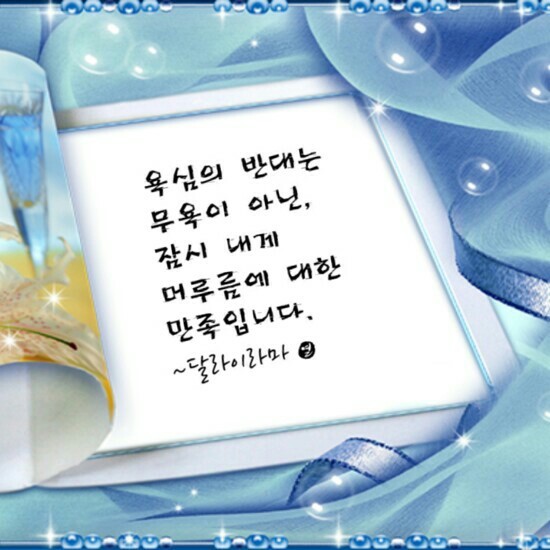 욕심의 반대는
무욕이 아닌,
잠시 내게
머루름에 대한
만족입니다.
~달라이라마